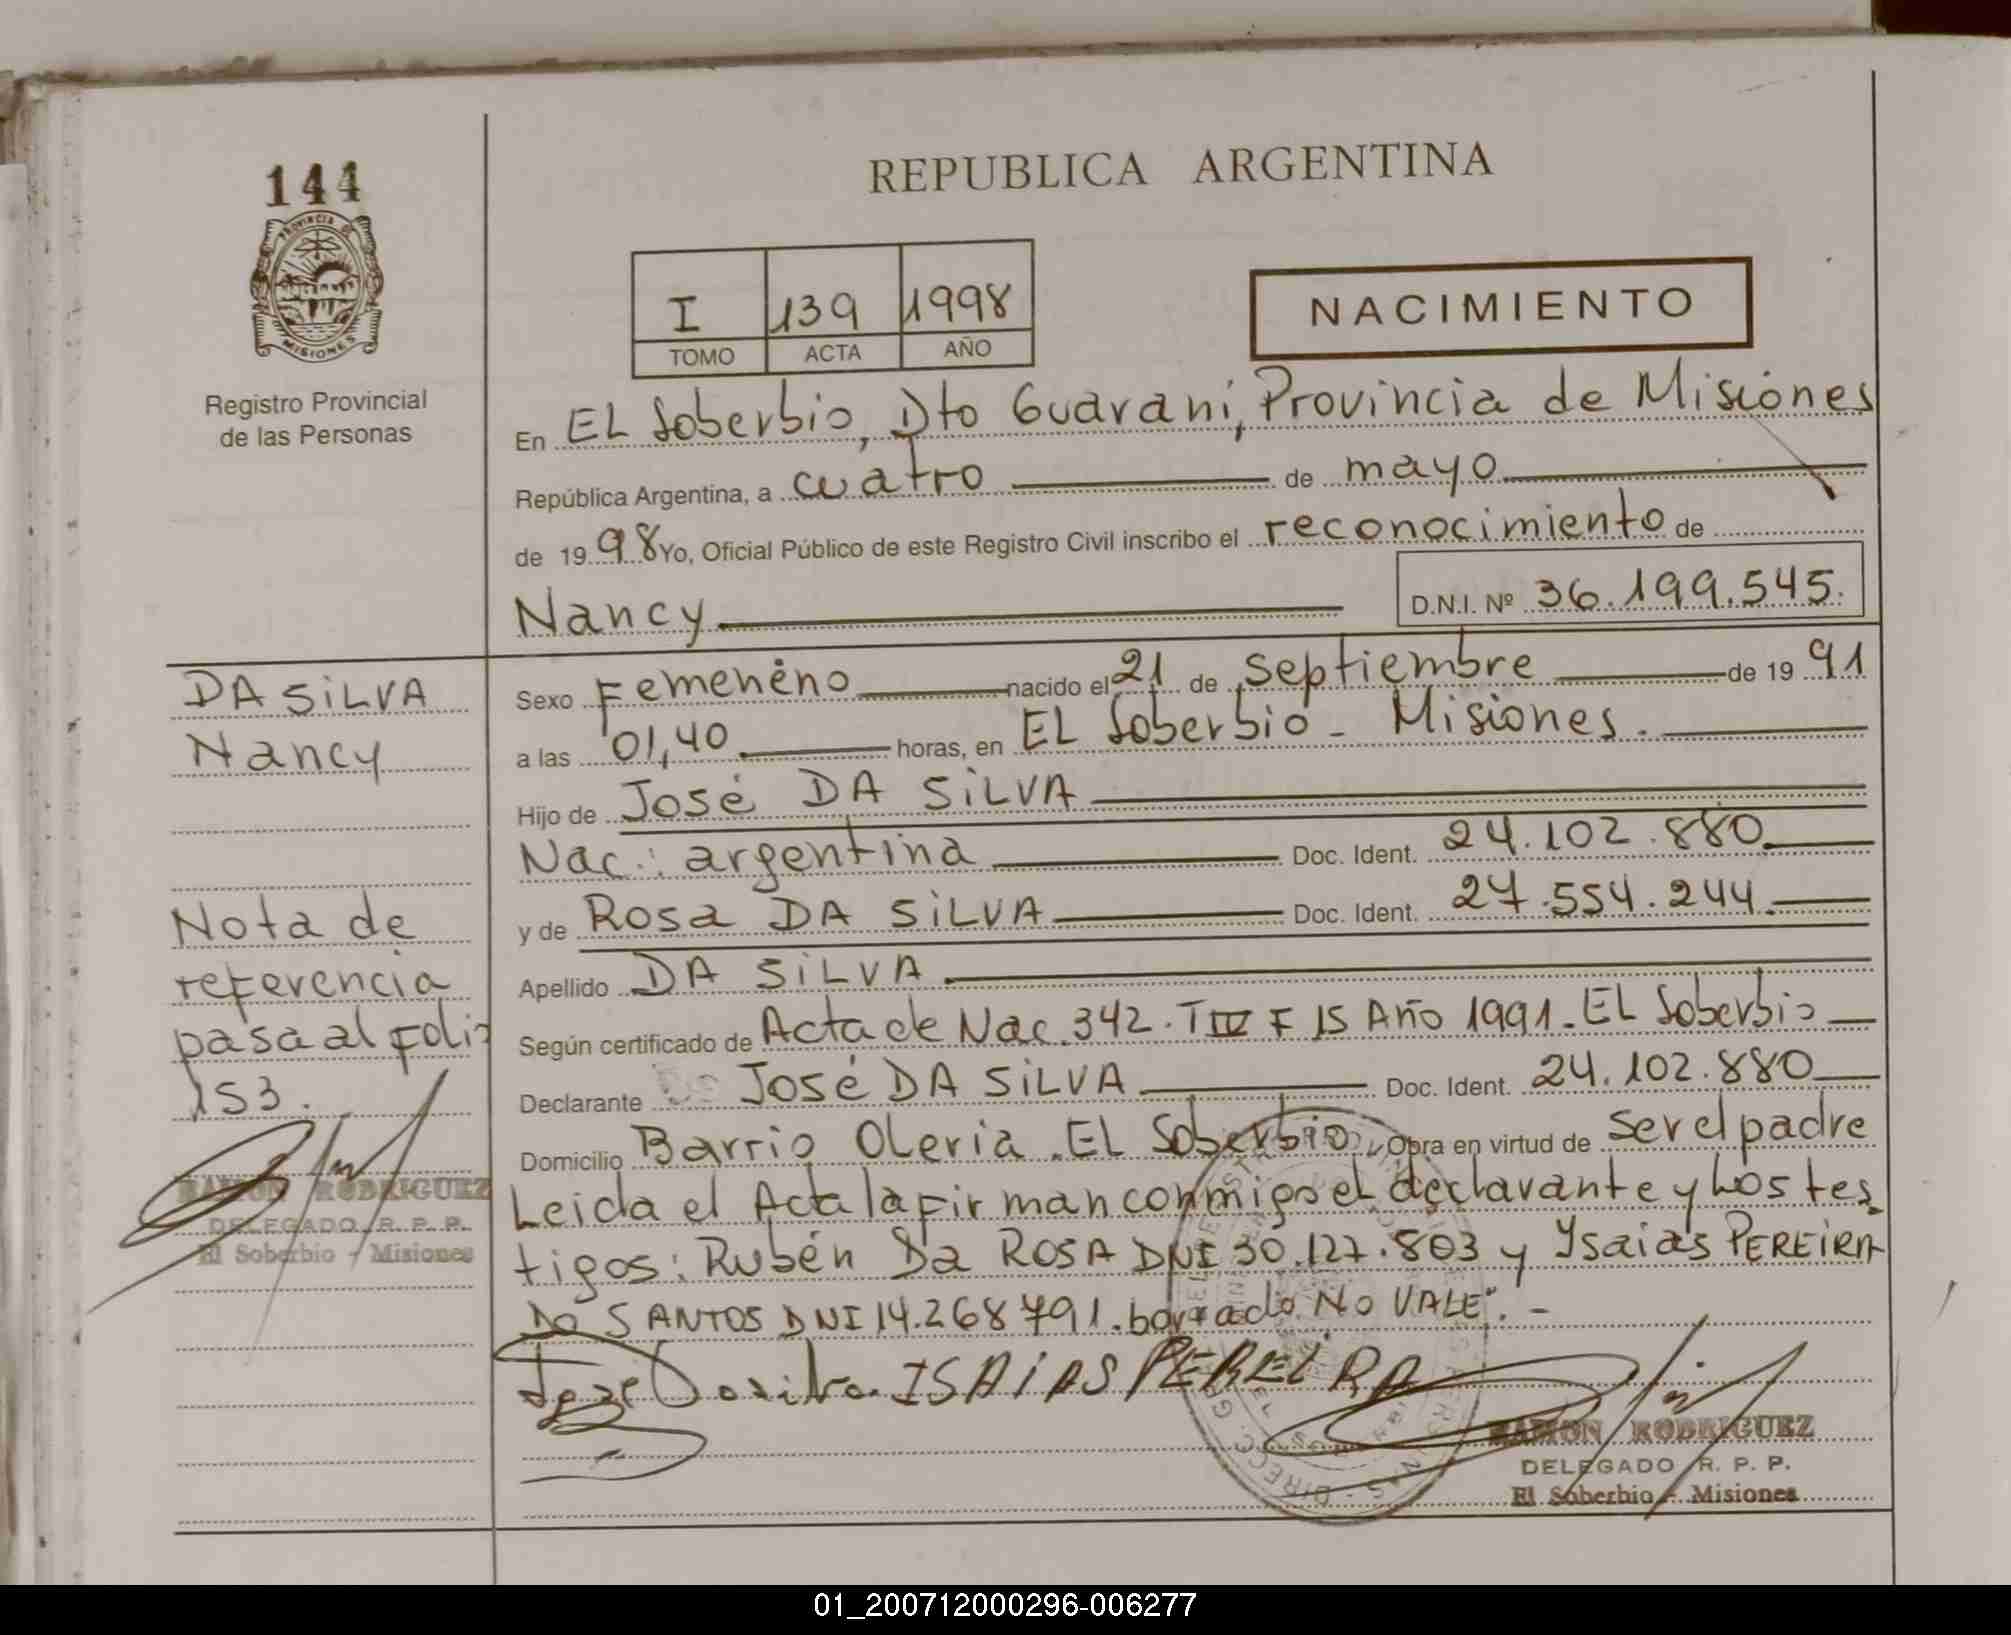 144
PROVINCIA DE
MISIONES
Registro Provincial
de las Personas
REPUBLICA ARGENTINA
I 139 1998
TOMO ACTA AÑO
NACIMIENTO
En EL Soberbio, Dto Guaraní, Provincia de Misiones
República Argentina, a cuatro de mayo
de 1998 Yo, Oficial Público de este Registro Civil inscribo el reconocimiento de
Nancy D.N.I. Nº 36.199.545.
DA SiLVA
Nancy
Nota de
referencia
pasa al folio
153.
RAMON RODRIGUEZ
DELEGADO R. P. P.
El Soberbio - Misiones
Sexo Femeneno nacido el 21 de Septiembre de 1991
a las 01,40 horas, en EL Soberbio - Misiones.
Hijo de José DA SiLVA
Nac.: argentina Doc. Ident. 24.102.880
y de Rosa DA SiLVA Doc. Ident. 27.554.244
Apellido DA SiLVA
Según certificado de Acta de Nac. 342. T IV F 15 Año 1991. EL Soberbio
Declarante José DA SiLVA Doc. Ident. 24.102.880
Domicilio Barrio Oleria. EL Soberbio Obra en virtud de ser el padre
Leida el Acta la firman conmigo el declarante y Los tes
tigos: Rubén Da ROSA DNI 30.127.803 y Ysaias PEREIRA
DO SANTOS DNI 14.268791. borrado NO VALE". -
ISAIAS PEREIRA
RAMON RODRIGUEZ
DELEGADO R. P. P.
El Soberbio - Misiones
01_200712000296-006277